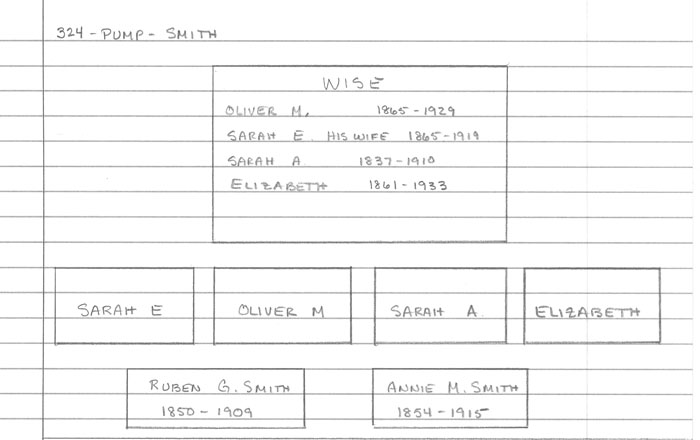 324 - PUMP - SMITH
WISE
OLIVER M. 1865-1929
SARAH E. HIS WIFE 1865-1919
SARAH A. 1837-1910
ELIZABETH 1861-1933
SARAH E OLIVER M SARAH A. ELIZABETH
RUBEN G. SMITH ANNIE M. SMITH
1850-1909 1854-1915